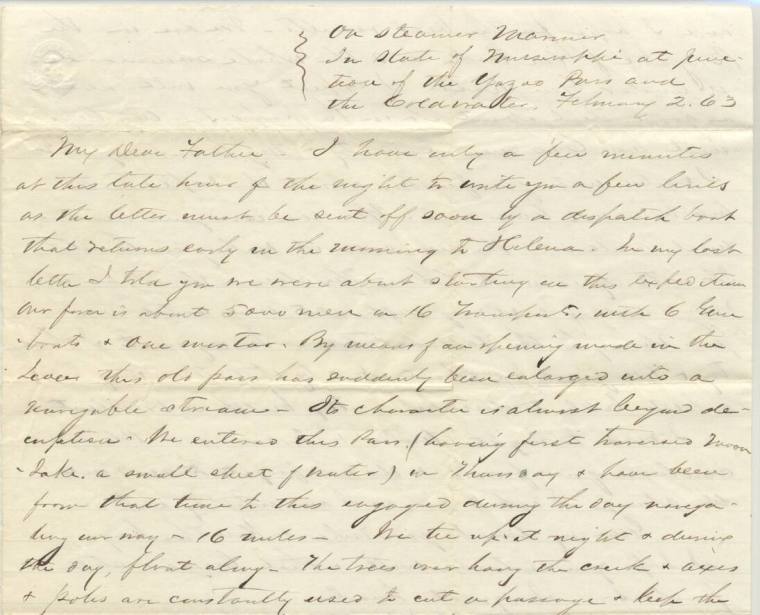 On Steamer Mariner
In State of Mississippi, at junc-
tion of the Yazoo Pass and
the Coldwater, February 2. 63
My Dear Father - I have only a few minutes
at this late hour of the night to write you a few lines
as the letter must be sent off soon by a dispatch boat
that returns early in the morning to Helena. In my last
letter I told you we were about starting on this expedition
Our force is about 5000 men in 16 Transports, with 6 Gun
boats & one mortar. By means of an opening made in the
Levee this old pass has suddenly been enlarged into a
navigable stream - Its character is almost beyond de-
scription. We entered this Pass (having first traversed Moon
Lake. a small sheet of water) on Thursday & have been
from that time to this engaged during the day naviga-
ting our way - 16 miles - We tie up at night & during
the day, float along - The trees over hang the creek & axes
& poles are constantly used to cut a passage & keep the